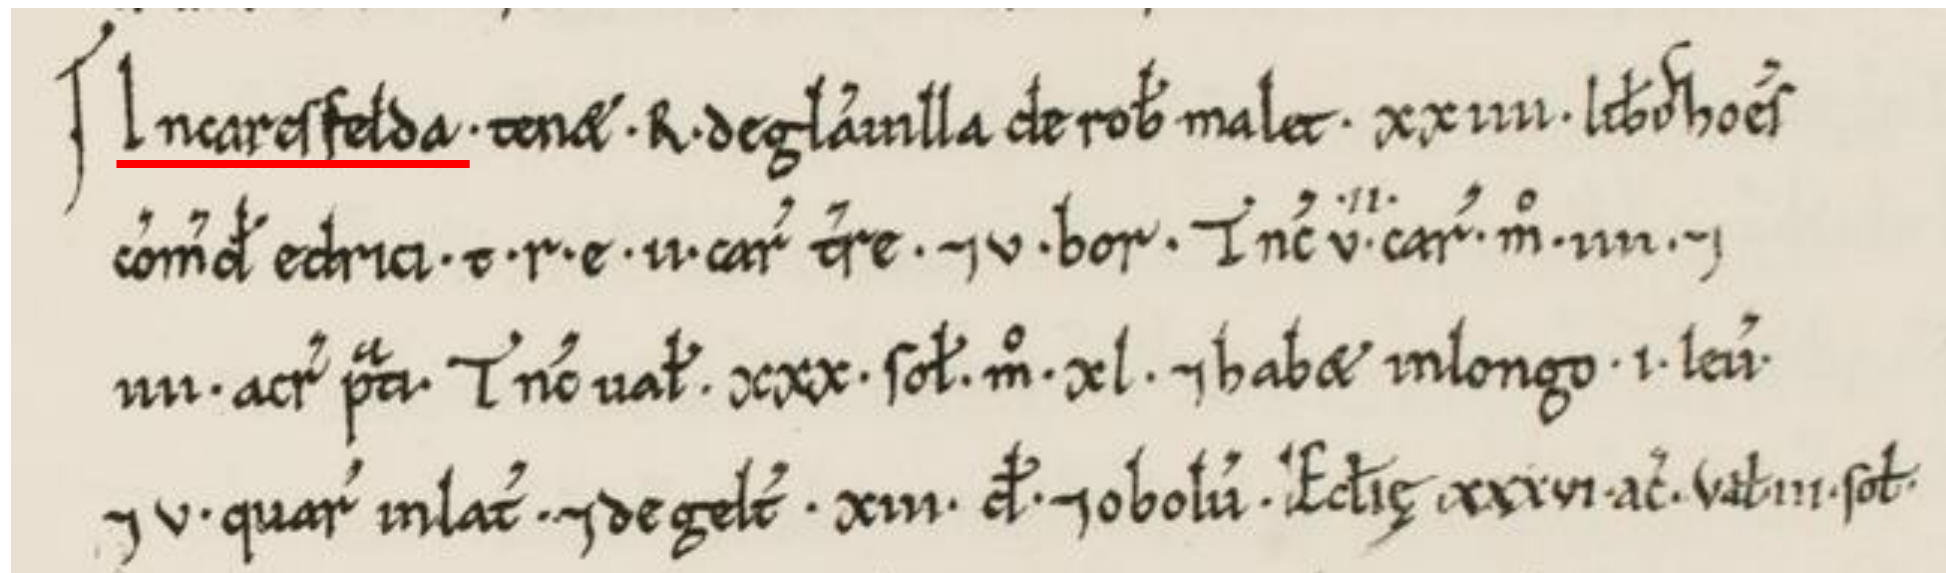 ¶ In caresfelda · ten& · R · de glãuilla de rob̄ malet · xxiiii · lib̄ hoēs
cōm̄d̄ edrici · t · r · e · ii · car̄ t̄re · ⁊ v · bor · Tn̄c v · ii · car̄ · m̊ · iiii · ⁊
iiii · acr̄ p̄ti · Tn̄c ual̄ · xxx · sol̄ · m̊ · xl · ⁊ hab& in longo · i · leū ·
⁊ v · quar̄ in lat̄ · ⁊ de gelt̄ · xiii · d̄ · ⁊ obolū · Eccl̄ię xxxvi · ac̄ · Val̄ iii · sol̄ ·